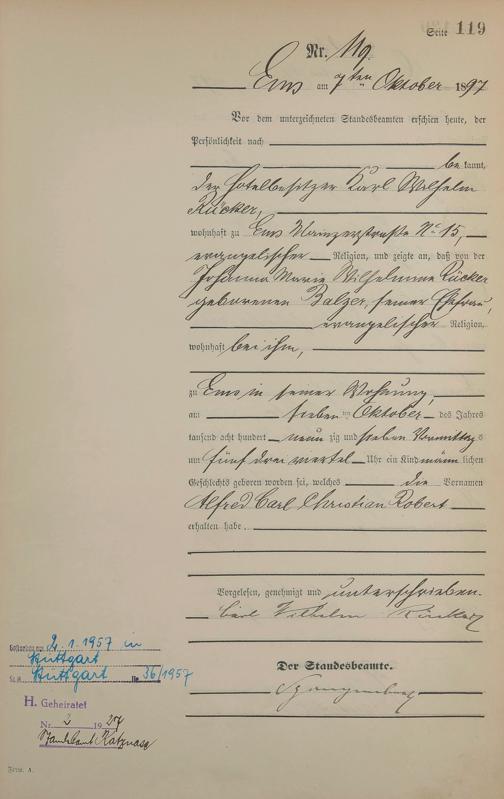 Seite 119
Nr. 119.
Ems am 7ten Oktober 1897
Vor dem unterzeichneten Standesbeamten erschien heute, der
Persönlichkeit nach
be kannt,
der Hotelbesitzer Karl Wilhelm
Rücker,
wohnhaft zu Ems Mainzerstraße No 15,
evangelischer Religion, und zeigte an, daß von der
Johanna Marie Wilhelmine Rücker
geborenen Balzer, seiner Ehefrau,
evangelischer Religion,
wohnhaft bei ihm,
zu Ems in seiner Wohnung,
am sieben ten Oktober des Jahres
tausend acht hundert neun zig und sieben Vormittags
um fünf drei viertel Uhr ein Kind männ lichen
Geschlechts geboren worden sei, welches die Vornamen
Alfred Carl Christian Robert
erhalten habe.
Vorgelesen, genehmigt und unterschrieben.
Carl Wilhelm Rücker
Der Standesbeamte.
Gestorben am 2.1.1957 in
Stuttgart
St.A. Stuttgart No 36/1957
H. Geheiratet
Nr. 2 19 27
Standesamt
Form. A.